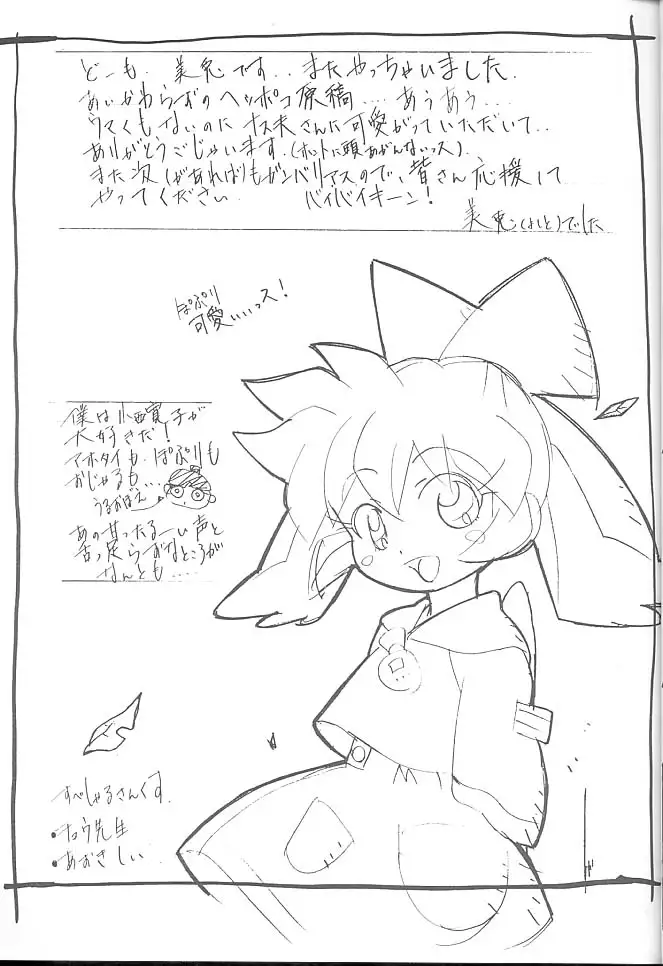 どーも、美兎です、、またやっちゃいました。
あいかわらずのヘッポコ原稿…あうあう…
ウマくもないのに大夫さんに可愛がっていただいて、、
ありがとうごじゃいます。(ホントに頭あがんないっス)。
また次(があれば)もガンバリマスので、皆さん応援して
やってください。 バイバイキーン!
美兎(よしと)でした
ぱぷり
可愛いいっス!
僕は小西寛子が
大好きだ!
マホタイも、ぱぷりも
おじゃるも…
うるおぼえ
あの甘ったるーい声と
舌っ足らずなところが
なんとも……
すぺしゃるさんくす。
・チョウ先生
・あおきしい